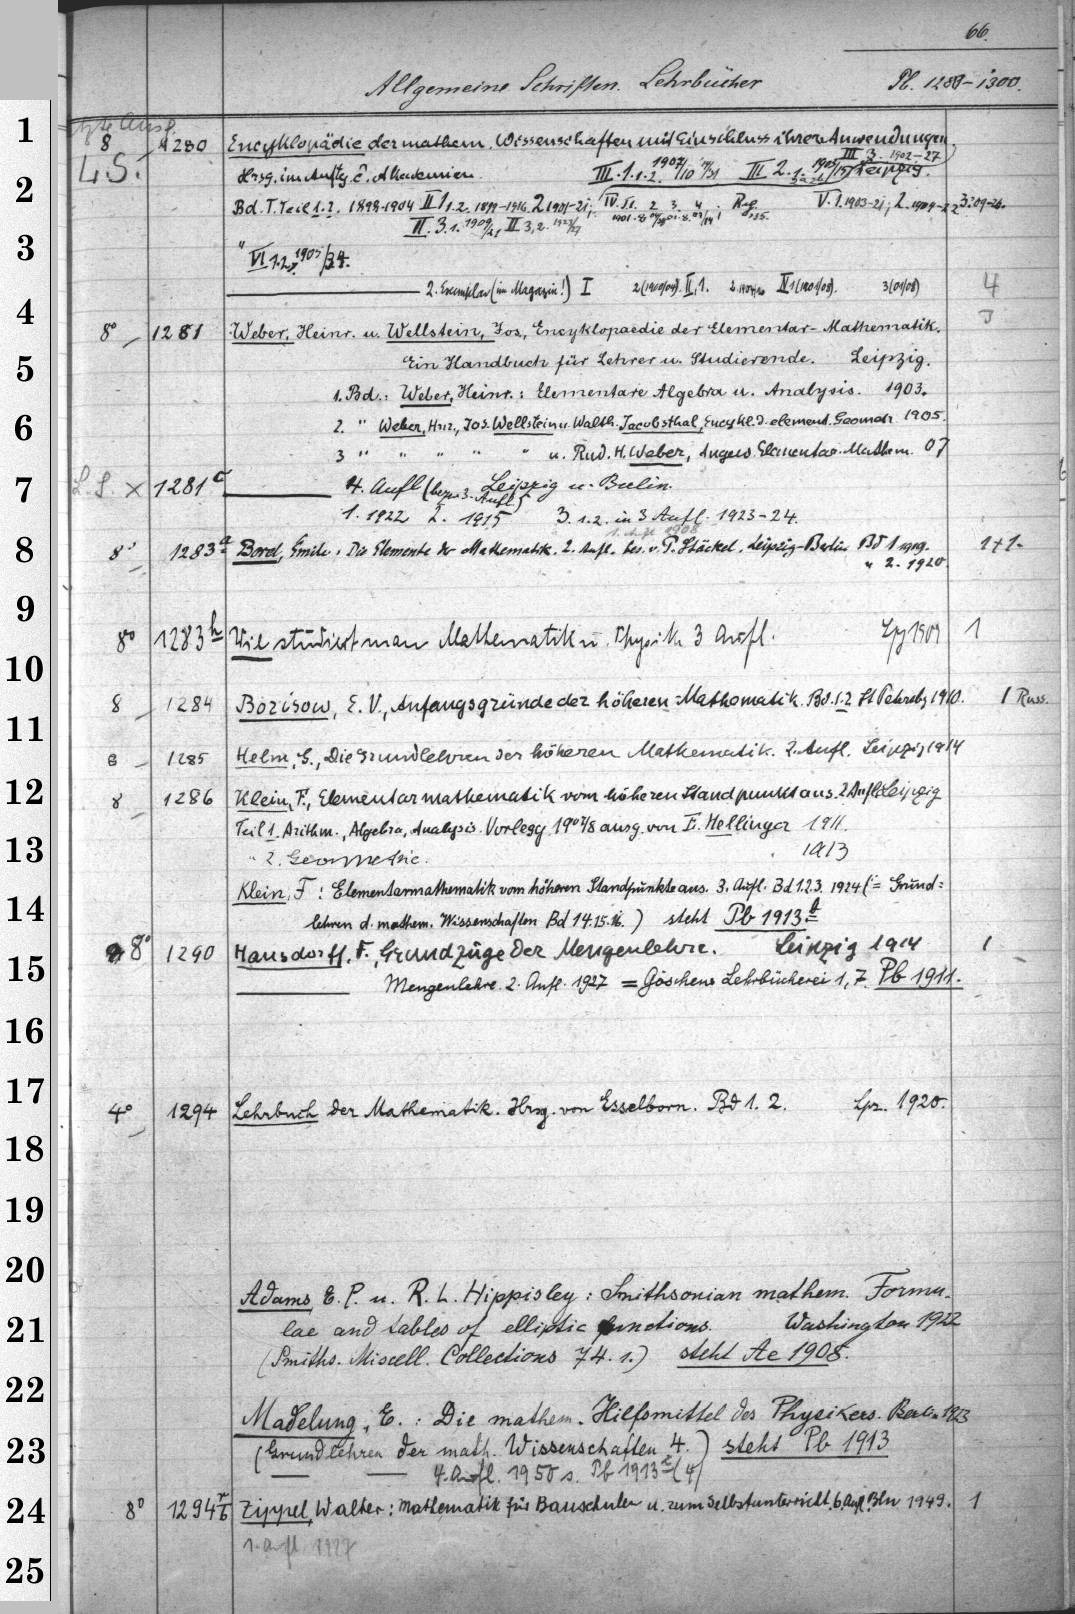 66.
Allgemeine Schriften. Lehrbücher Pb. 1280-1300.
1
8 1280 Encyklopädie der mathem. Wissenschaften mit Einschluss ihrer Anwendungen
L.S. Hrsg. im Auftg. d. Akademien. III. 1. 1-2. III 2. III 3. 1902-27 Leipzig.
2
Bd. I. Teil 1. 2. 1898-1904 II 1 1.2. 1899-1916. 2 1901-21; IV. 2 3. 4 Reg. V. 1. 1903-21; 2.
II. 3. 1. II 3, 2.
3
" VI 1.2.
2. Exemplar (im Magazin!) I II, 1. IV 1 (1901/08). 4
4
8° 1281 Weber, Heinr. u. Wellstein, Jos., Encyklopaedie der Elementar-Mathematik. 3
5
Ein Handbuch für Lehrer u. Studierende. Leipzig.
1. Bd.: Weber, Heinr.: Elementare Algebra u. Analysis. 1903.
6
2. " Weber, Hnr., Jos. Wellstein u. Walth. Jacobsthal, Encykl. d. element. Geometr. 1905.
3 " " " " " u. Rud. H. Weber, Angew. Elementar-Mathem. 07
7
L.S. x 1281 c 4. Aufl (bezw. 3. Aufl.) Leipzig u. Berlin.
1. 1922 2. 1915 3. 1.2. in 3 Aufl. 1923-24.
1. Aufl 1908
8
8° 1283 a Borel, Emile: Die Elemente der Mathematik. 2. Aufl. bes. v. P. Stäckel. Leipzig-Berlin Bd 1 1919. 1+1.
" 2. 1920.
9
8° 1283 h Wie studiert man Mathematik u. Physik 3 Aufl. Lpz 1909 1
10
8 1284 Borisow, E. V., Anfangsgründe der höheren Mathematik. Bd. 1.2 St Petersbg 1910. 1 Russ.
11
8 1285 Helm, G., Die Grundlehren der höheren Mathematik. 2. Aufl. Leipzig 1914
12
8 1286 Klein, F., Elementarmathematik vom höheren Standpunkt aus. 2 Aufl. Leipzig
Teil 1. Arithm., Algebra, Analysis. Vorlesg 1907/8 ausg. von E. Hellinger 1911.
13
" 2. Geometrie. 1913
Klein, F: Elementarmathematik vom höheren Standpunkte aus. 3. Aufl. Bd 1.2.3. 1924 (= Grund=
14
lehren d. mathem. Wissenschaften Bd 14.15.16.) steht Pb 1913
8° 1290 Hausdorff, F., Grundzüge der Mengenlehre. Leipzig 1914 1
15
Mengenlehre. 2. Aufl. 1927 = Göschens Lehrbücherei 1, 7. Pb 1911.
16
17
4° 1294 Lehrbuch der Mathematik. Hrsg. von Esselborn. Bd 1. 2. Lpz. 1920.
18
19
20
Adams E. P. u. R. L. Hippisley: Smithsonian mathem. Formu-
21
lae and tables of elliptic functions. Washington 1922
(Smiths. Miscell. Collections 74. 1.) steht Ae 1908.
22
Madelung, E.: Die mathem. Hilfsmittel des Physikers. Berlin 1923
23
(Grundlehren der math. Wissenschaften 4.) steht Pb 1913
4. Aufl. 1950 s. Pb 1913 (4)
24
8° 1294 Zippel, Walter: Mathematik für Bauschulen u. zum Selbstunterricht. 6. Aufl. Bln 1949. 1
1. Aufl 1927
25